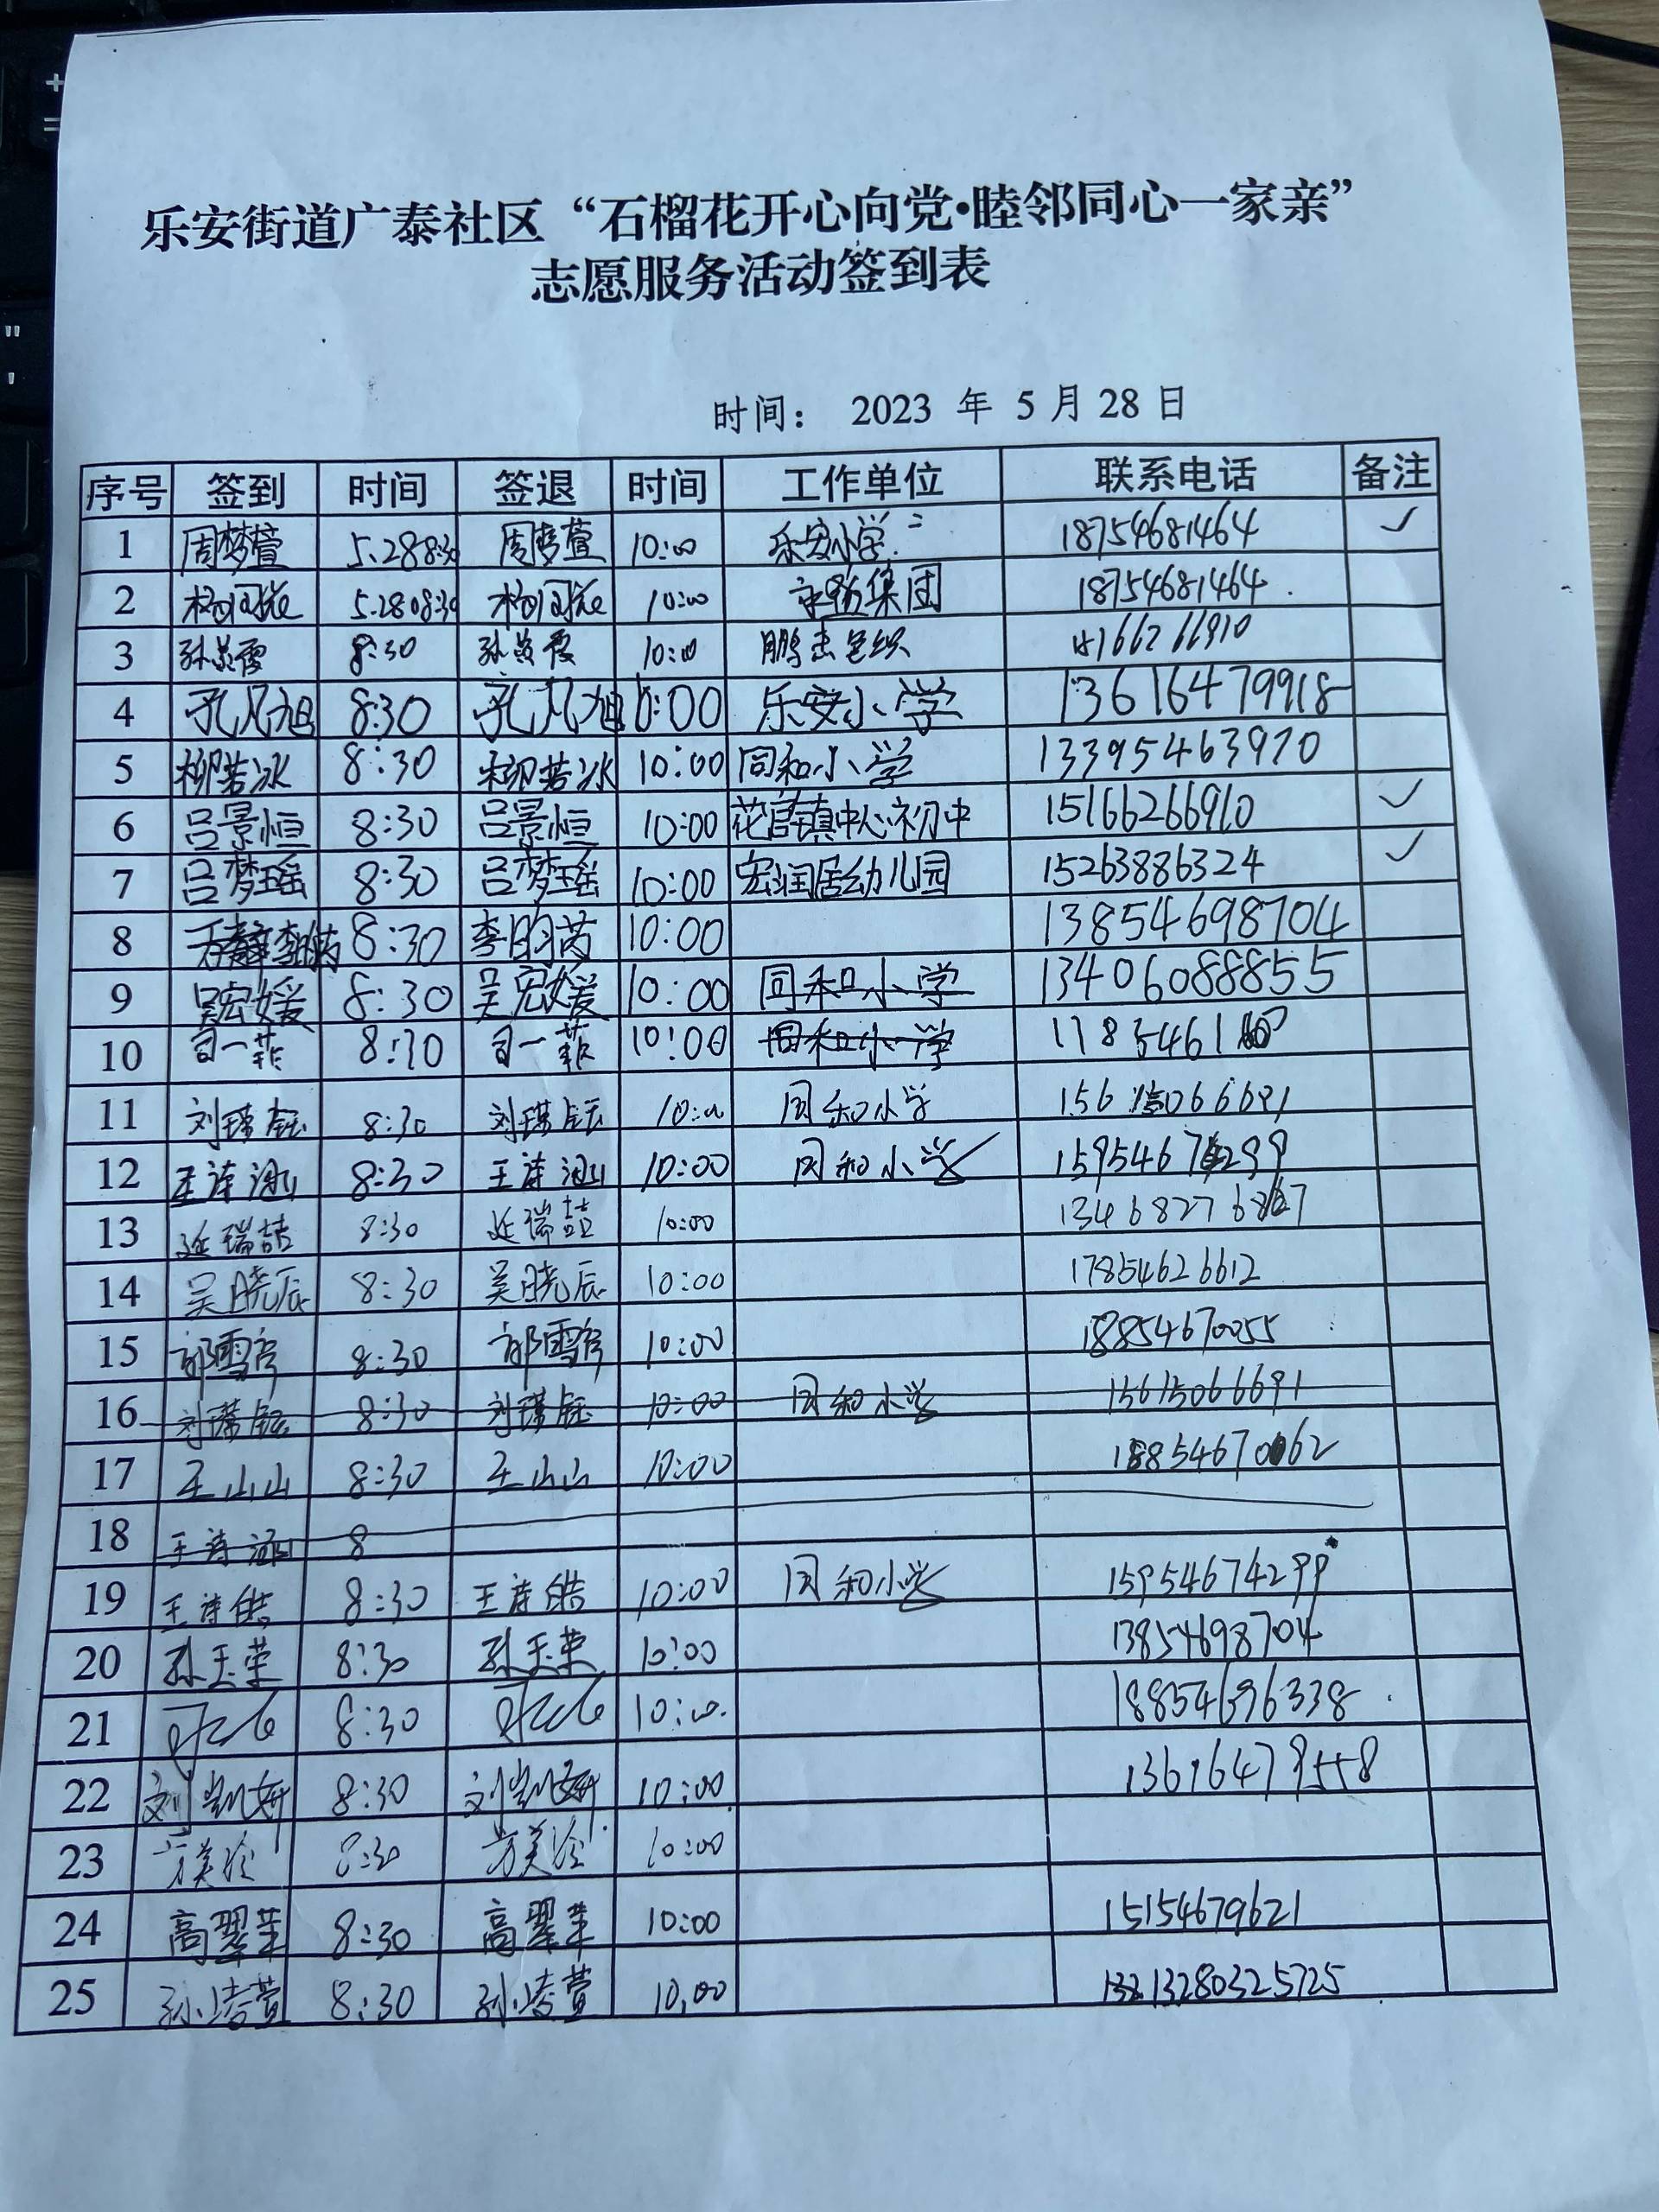 乐安街道广泰社区“石榴花开心向党•睦邻同心一家亲”
志愿服务活动签到表
时间： 2023 年 5 月 28 日
序号 签到 时间 签退 时间 工作单位 联系电话 备注
1 周梦萱 5.28 8:30 周梦萱 10:00 乐安小学 18754681464 ✓
2 5.28 08:30 10:00 集团 18754681464
3 孙 霞 8:30 孙 霞 10:00 66910
4 孔凡旭 8:30 孔凡旭 10:00 乐安小学 13616479918
5 柳若冰 8:30 柳若冰 10:00 同和小学 13395463970
6 吕景恒 8:30 吕景恒 10:00 花官镇中心初中 15166266910 ✓
7 吕梦瑶 8:30 吕梦瑶 10:00 宏润居幼儿园 15263886324 ✓
8 8:30 李昀芮 10:00 13854698704
9 吴宏媛 8:30 吴宏媛 10:00 同和小学 13406088855
10 司一菲 8:30 司一菲 10:00 同和小学
11 刘瑾钰 8:30 刘瑾钰 10:00 同和小学 15615066691
12 王诗涵 8:30 王诗涵 10:00 同和小学 15954674299
13 延瑞喆 8:30 延瑞喆 10:00
14 吴晓辰 8:30 吴晓辰 10:00 17854626612
15 郭雪彦 8:30 郭雪彦 10:00 18854670055
16 刘瑾钰 8:30 刘瑾钰 10:00 同和小学 15615066691
17 王山山 8:30 王山山 10:00 18854670062
18 王诗涵 8
19 王诗皓 8:30 王诗皓 10:00 同和小学 15954674299
20 孙玉荣 8:30 孙玉荣 10:00 13854698704
21 8:30 10:00 18854696338
22 刘凯妍 8:30 刘凯妍 10:00 13616479558
23 8:30 10:00
24 高翠苹 8:30 高翠苹 10:00 15154679621
25 孙 萱 8:30 孙 萱 10:00 13280325725